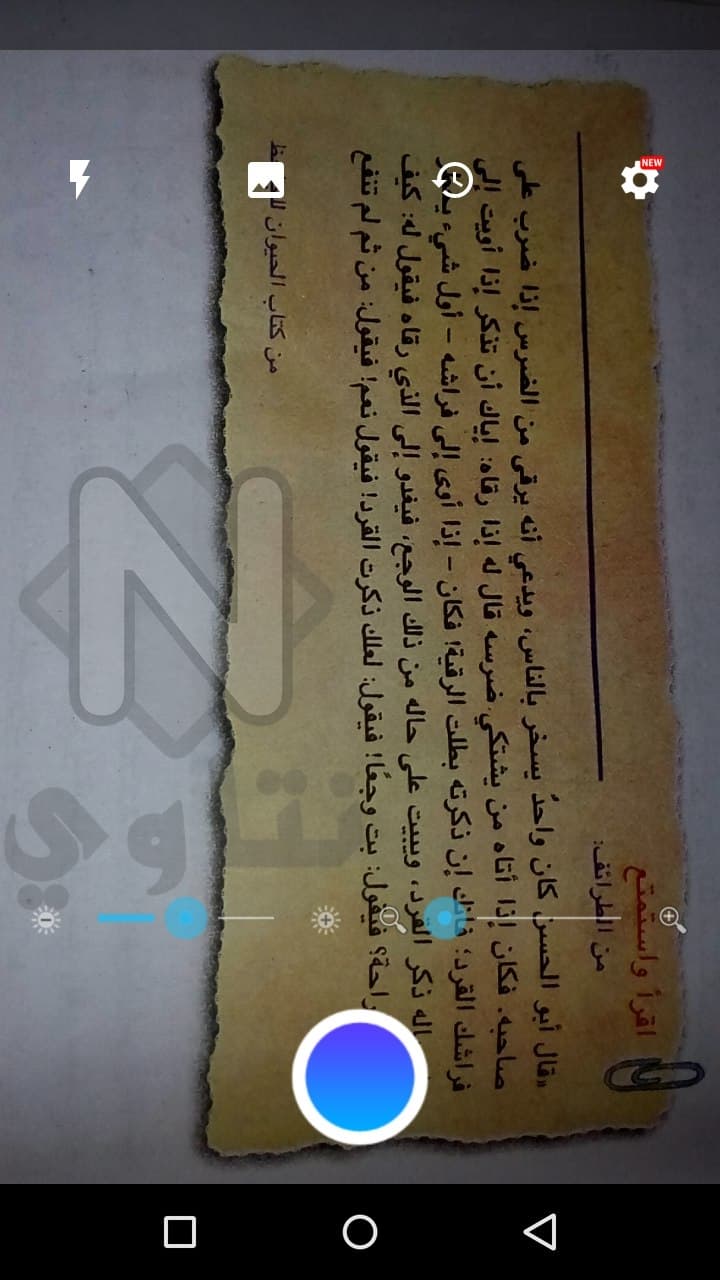 اقرأ واستمتع
من الطرائف:
«قال أبو الحسن كان واحدٌ يسخر بالناس، ويدعي أنه يرقى من الضرس إذا ضرب على
صاحبه. فكان إذا أتاه من يشتكي ضرسه قال له إذا رقاه: إياك أن تذكر إذا أويت إلى
فراشك القرد؛ فإنك إن ذكرته بطلت الرقية! فكان - إذا أوى إلى فراشه - أول شيء
ذكر القرد، ويبيت على حاله من ذلك الوجع، فيغدو إلى الذي رقاه فيقول له: كيف
فيقول: بت وجعًا! فيقول: لعلك ذكرت القرد! فيقول نعم! فيقول: من ثم لم تنفع
من كتاب الحيوان
NEW
N
نتاوي